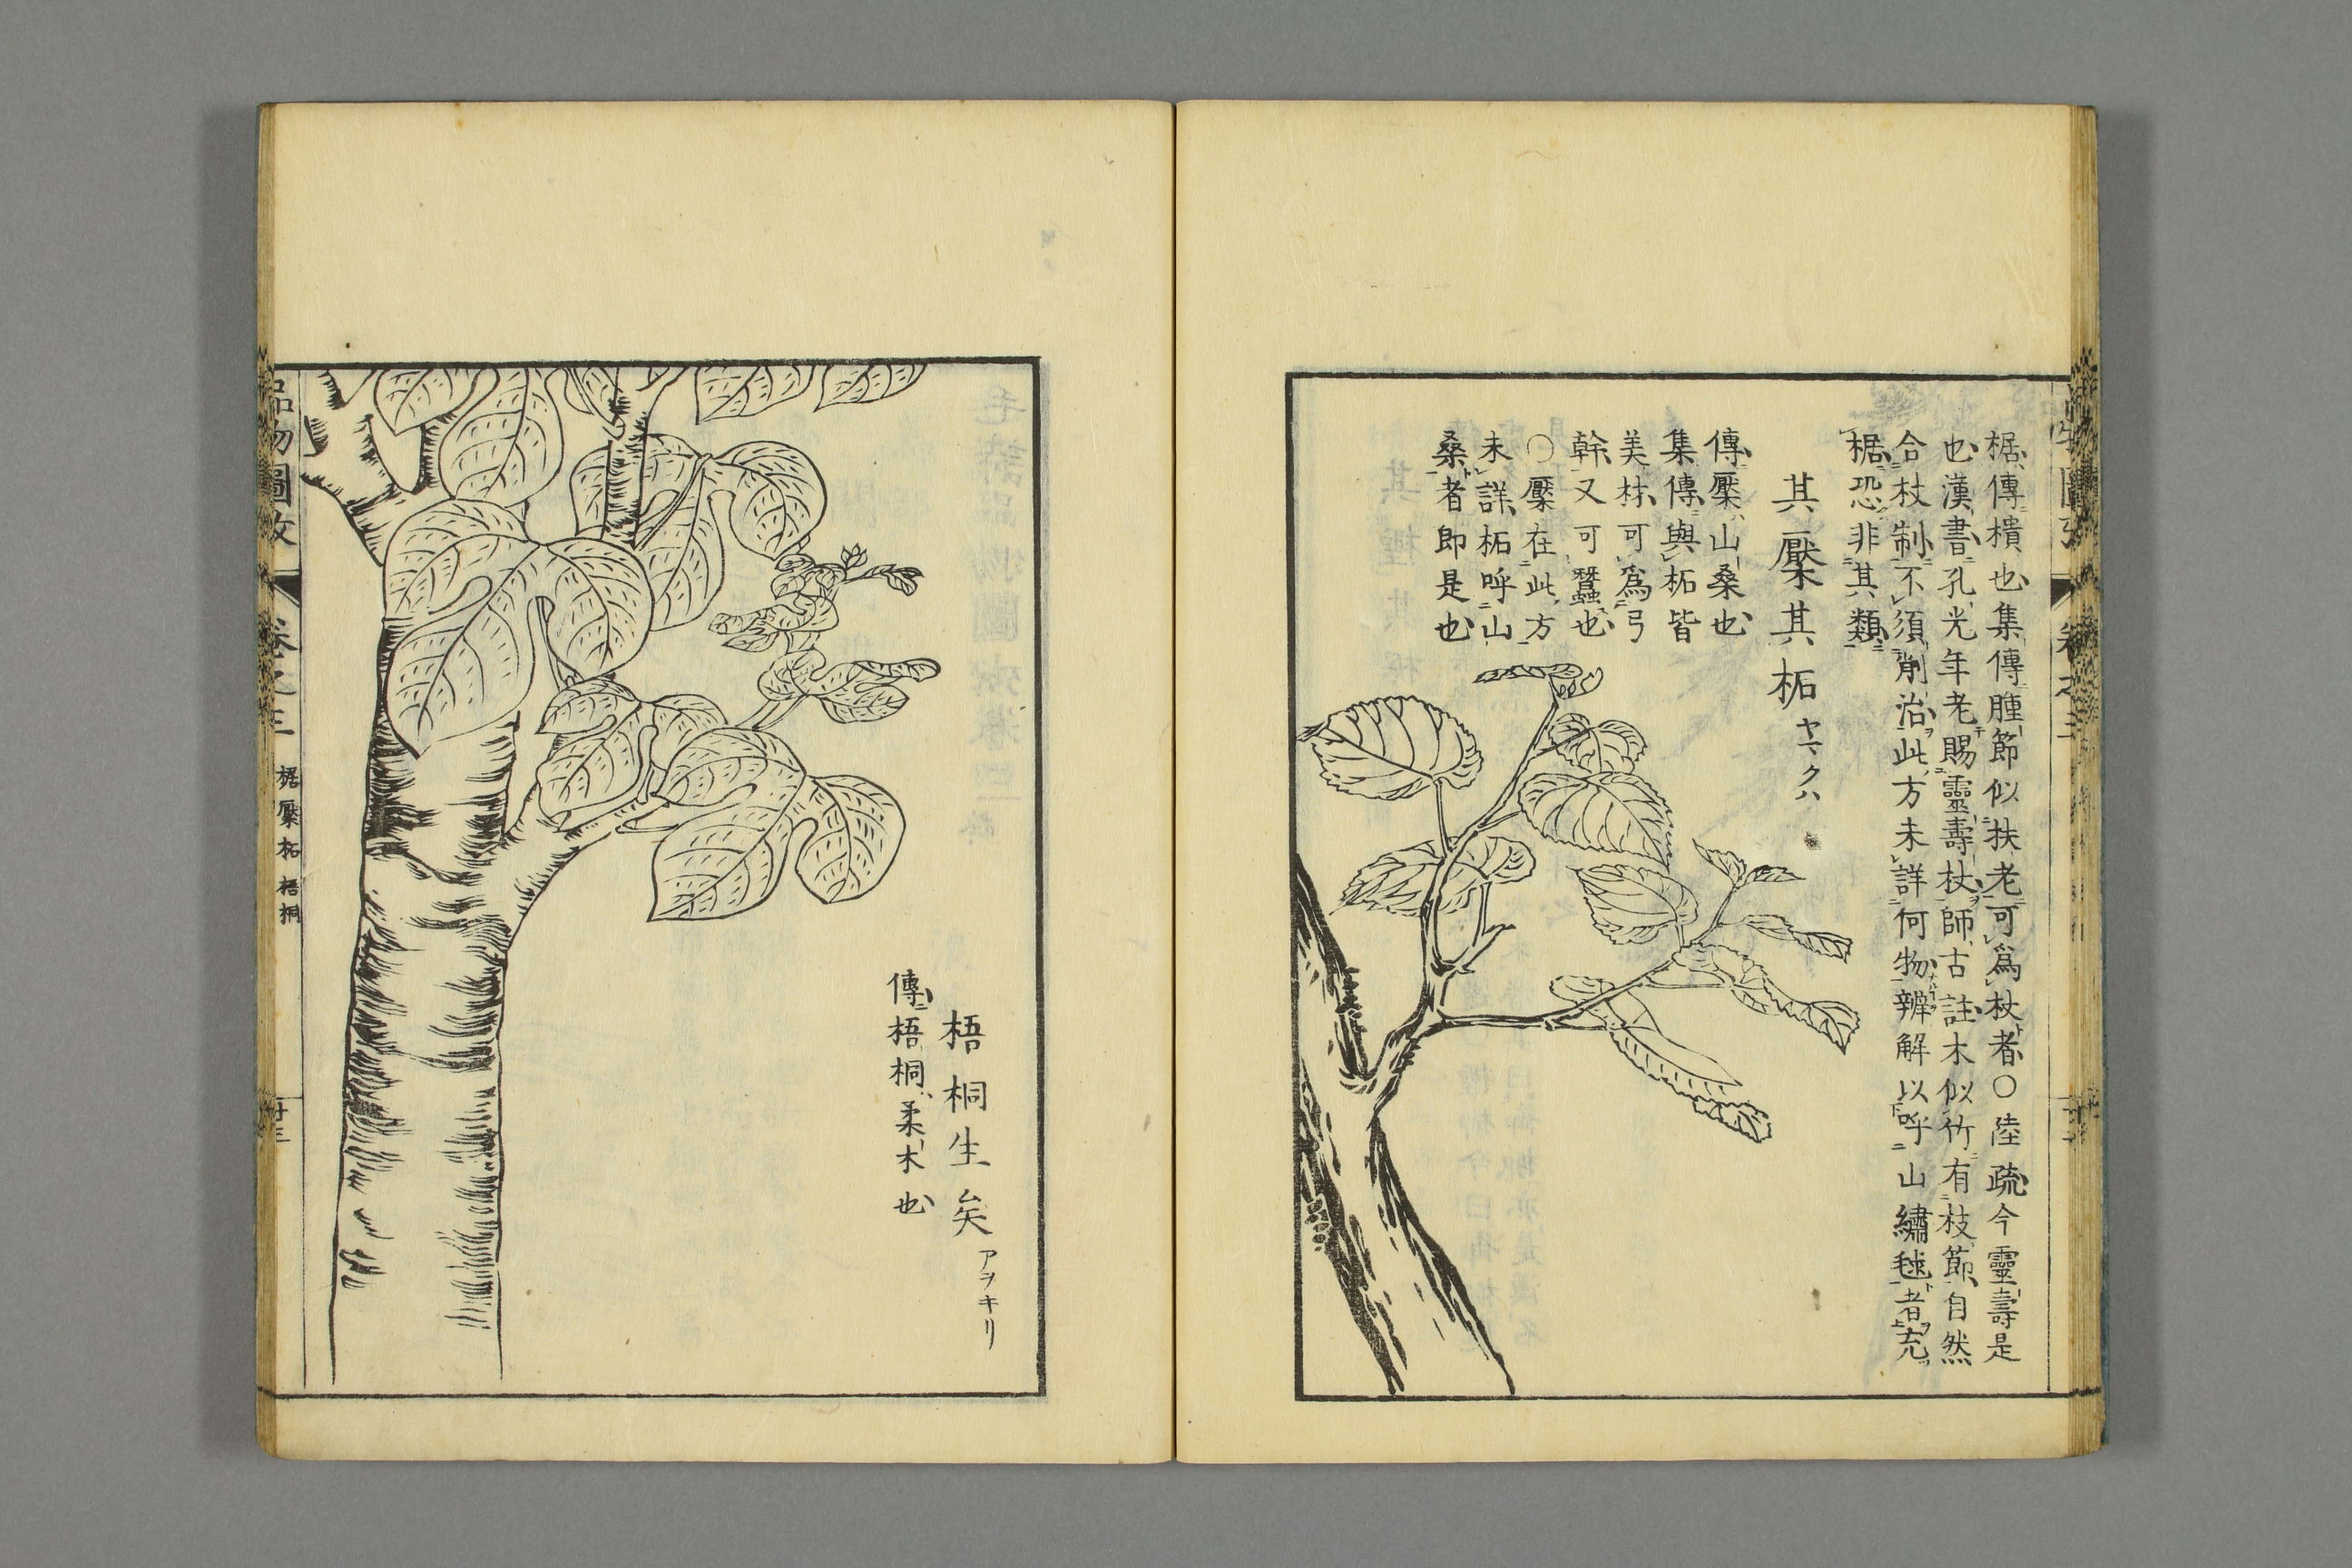 椐傳樻也集傳腫節似扶老可爲杖者〇陸疏今靈壽是
也漢書孔光年老賜靈壽杖師古註木似竹有枝節自然
合杖制不須削治此方未詳何物辨解以呼山繡毬者充
椐恐非其類
其檿其柘 ヤマクハ
傳檿山桑也
集傳與柘皆
美材可爲弓
幹又可蠶也
〇檿在此方
未詳柘呼山
桑者即是也
梧桐生矣 アヲキリ
傳梧桐柔木也
品物圖攷 卷之三 椐檿柘 梧桐 廿三